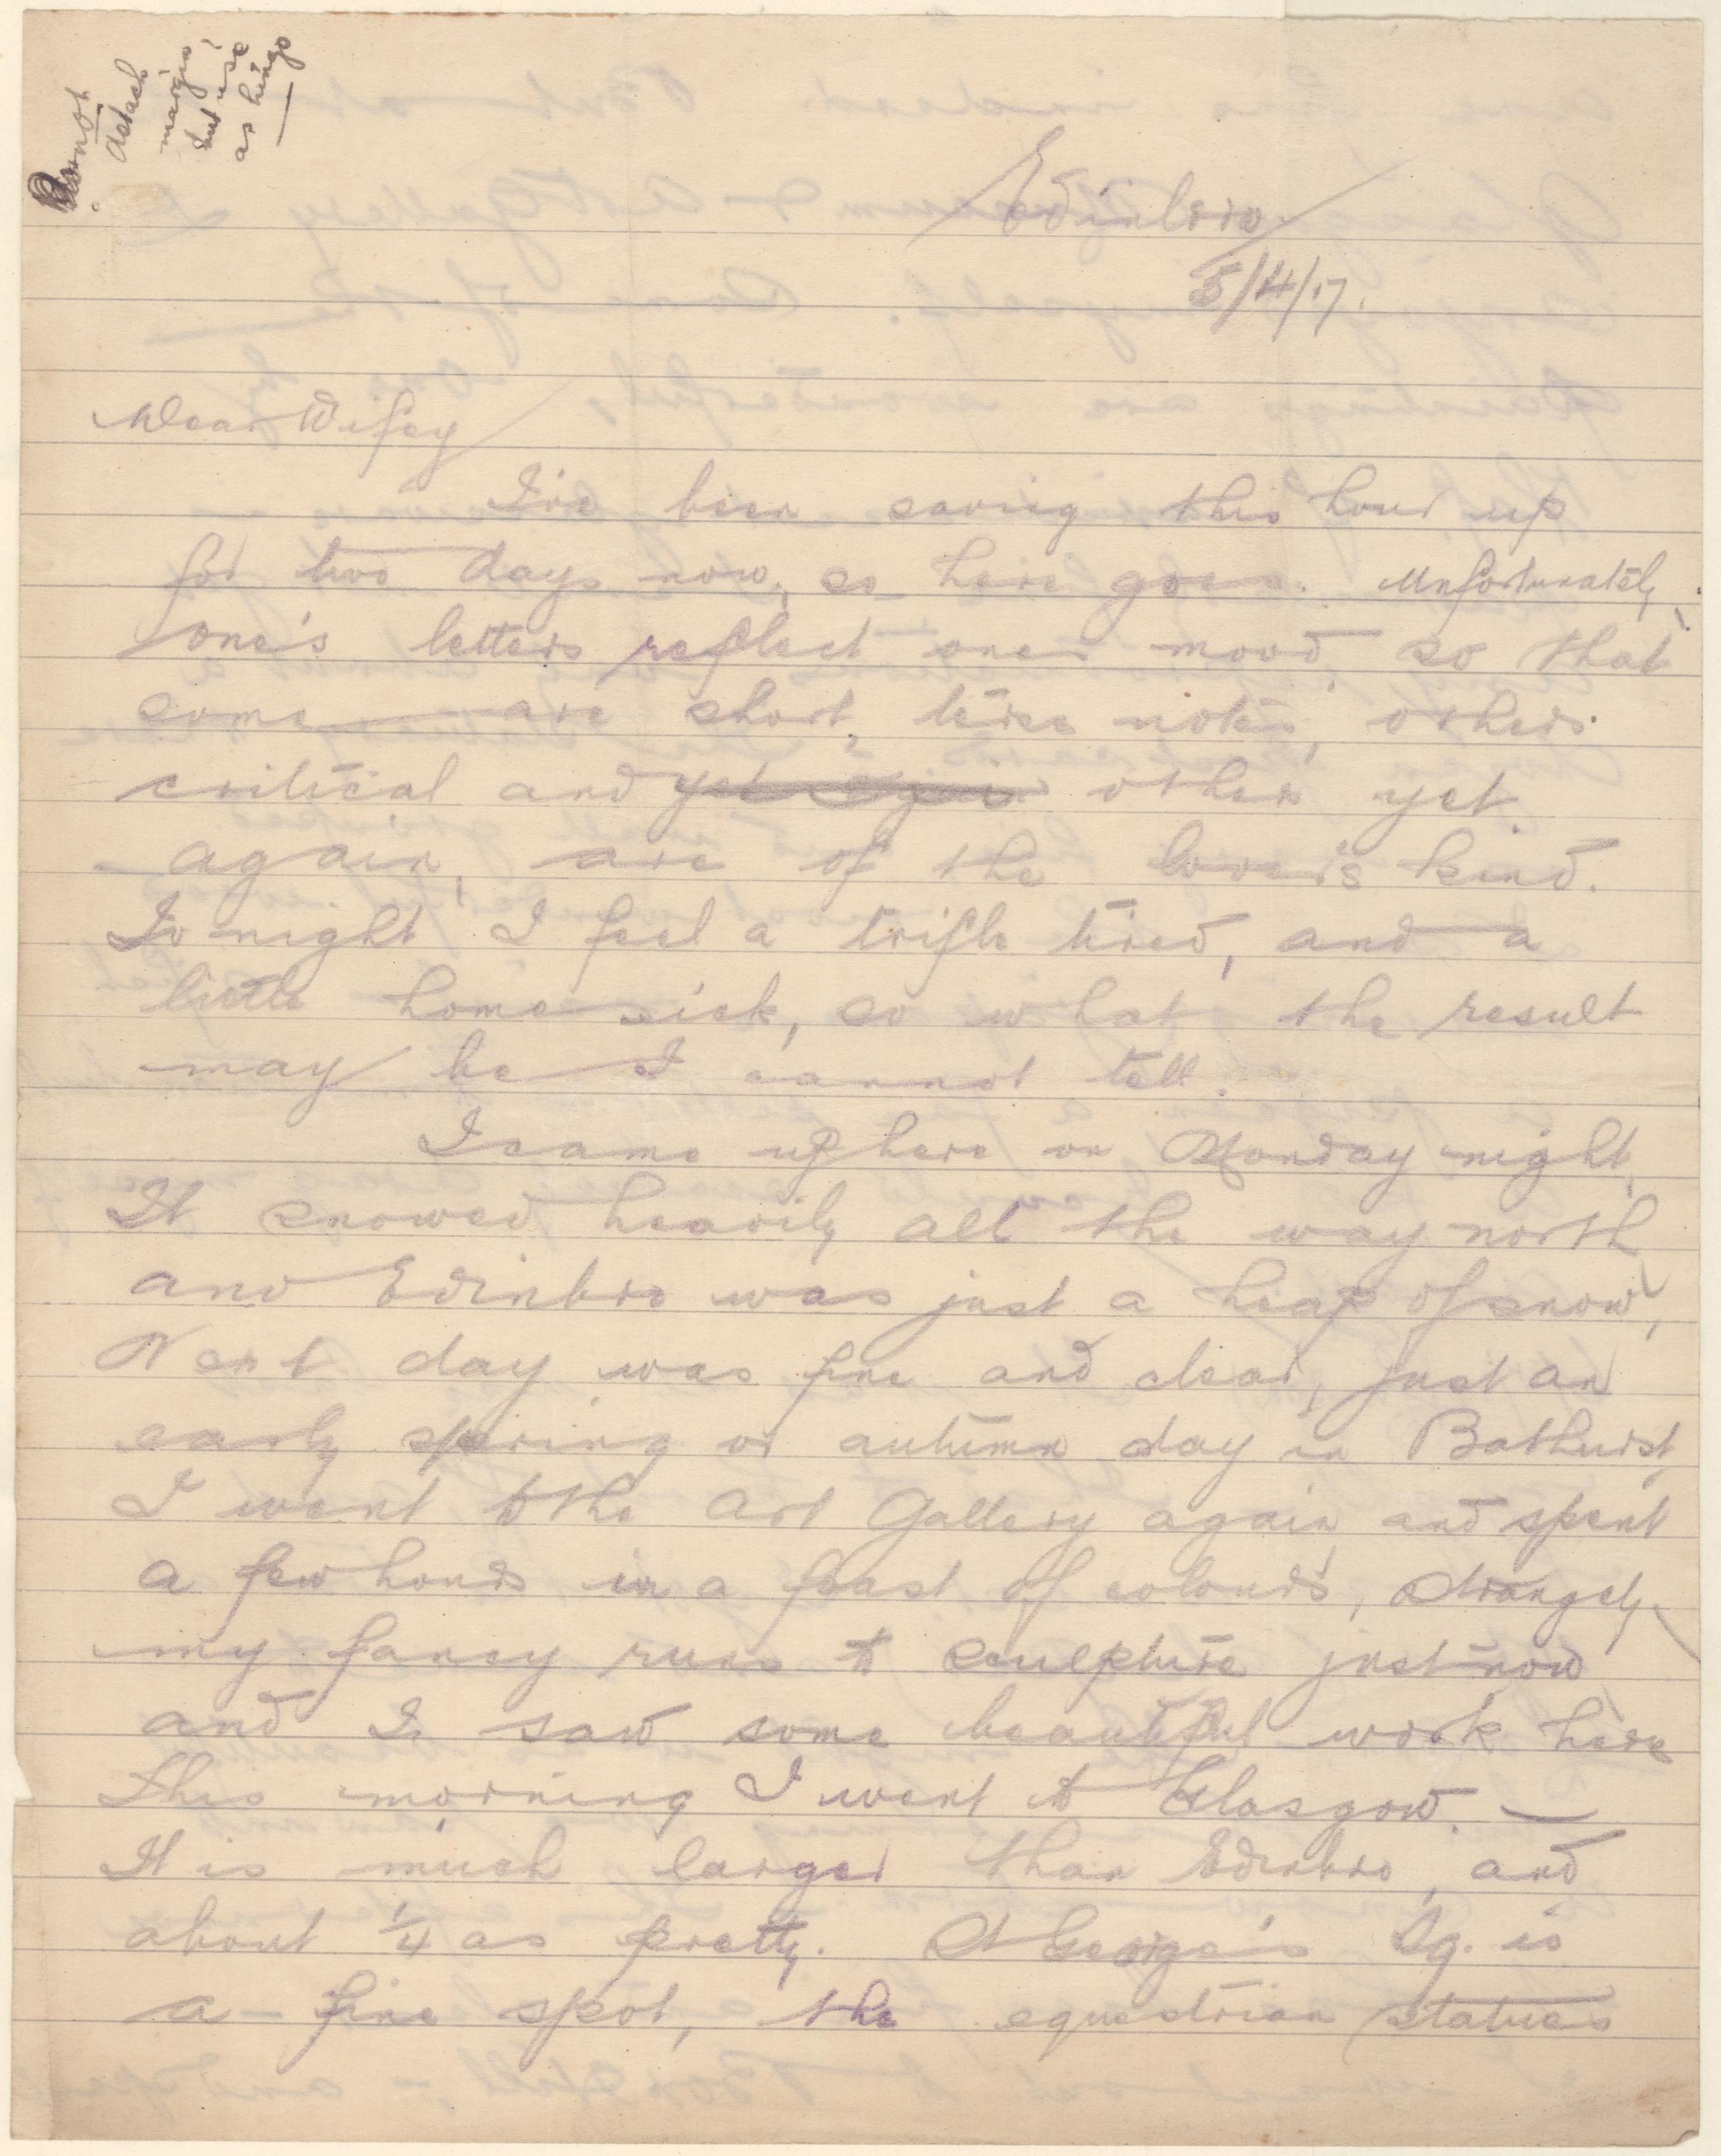 Do not
detach
margin
but use
as hinge
Edinbro
5/4/17.
Dear Wifey
I've been saving this hour up
for two days now, so here goes. Unfortunately,
one's letters reflect ones mood, so that
some are short, terse notes, others
critical and yet again others yet
again, are of the lover's kind.
To night I feel a trifle tired, and a
little homesick, so what the result
may be I cannot tell.
I came up here on Monday night,
It snowed heavily all the way north
and Edinbro was just a heap of snow,
Next day was fine and clear, just an
early spring or autumn day in Bathurst,
I went to the Art Gallery again and spent
a few hours in a feast of colours, Strangely
my fancy runs to sculpture just now
and I saw some beautiful work here
This morning I went to Glasgow. —
It is much larger than Edinbro, and
about 1/4 as pretty. St George's Sq. is
a fine spot, the equestrian statues